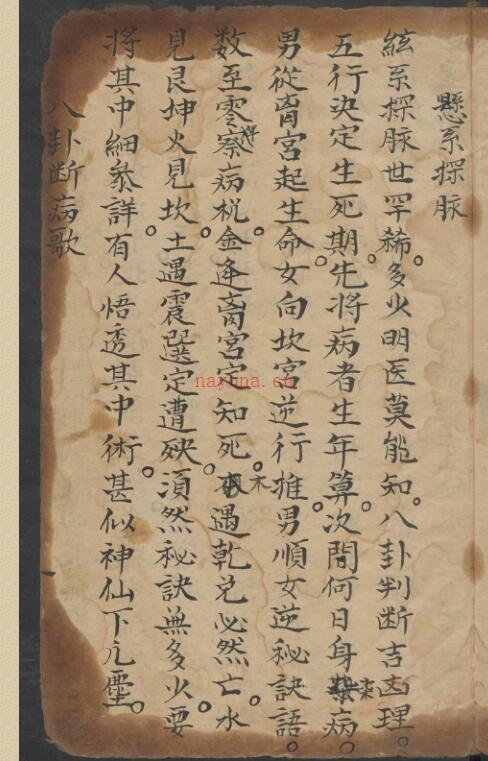 懸系探脉
絃系探脉世罕稀。多少明医莫能知。八卦判断吉凶理。
五行决定生死期。先将病者生年算。次問何日身染病。
男從离宮起生命。女向坎宮逆行推。男順女逆秘訣語。
数至零察病机。金逢离宮定知死。木遇乾兑必然亡。水
見艮坤火見坎。土遇震巽定遭殃。須然秘訣無多少。要
将其中細叅詳。有人悟透其中術。甚似神仙下凢塵。
八卦断病歌
nayona.cn